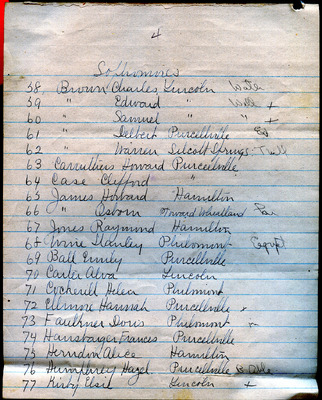 4
Sophmores
58, Brown Charles, Lincoln Water
59 " Edward " Well +
60 " Samuel " " +
61 " Delbert Purcellville
62 " Warren Silcott Springs
63 Carruthers Howard Purcellville
64 Case Clifford "
65 James Howard Hamilton
66 " Osborn
67 Jones Raymond Hamilton
68 Stanley Philomont Egypt
69 Ball Emily Purcellville
70 Carter Alva Lincoln
71 Cockerill Helen Philmont
72 Hannah Purcellville x
73 Faulkner Doris Philmont
74 Frances Purcellville
75 Herndon Alice Hamilton
76 Humphrey Hazel Purcellville
77 Kirby Elsie Lincoln +